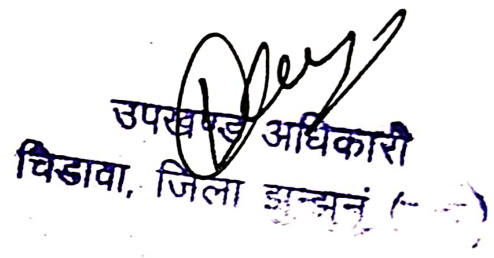 उपखण्ड अधिकारी
चिडावा, जिला झुन्झुनूं